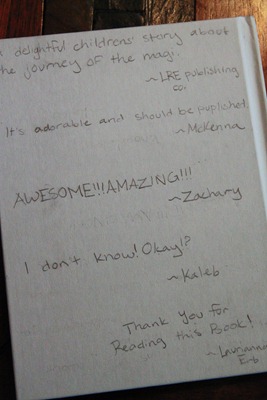 a delightful childrens' story about
the journey of the magi.
~LRE publishing
co.
It's adorable and should be puplished.
~McKenna
AWESOME!!!AMAZING!!!
~Zachary
I don't know! Okay!?
~Kaleb
Thank you for
Reading this Book!